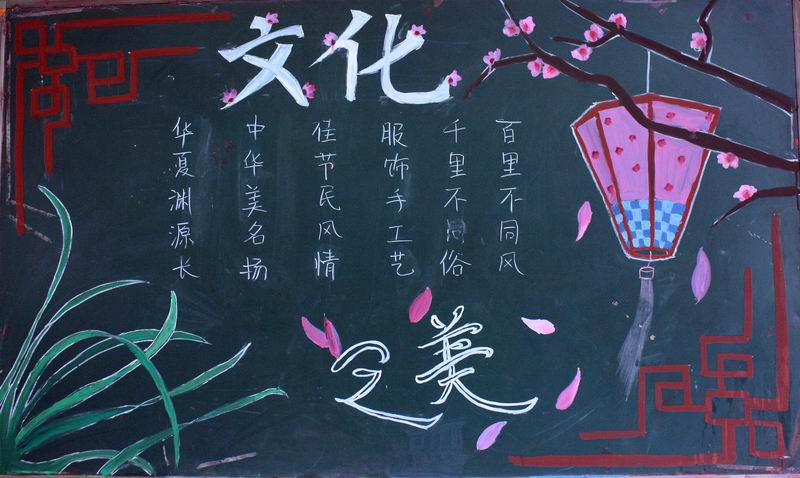 文化
百里不同风
千里不同俗
服饰手工艺
佳节民风情
中华美名扬
华夏渊源长
之美